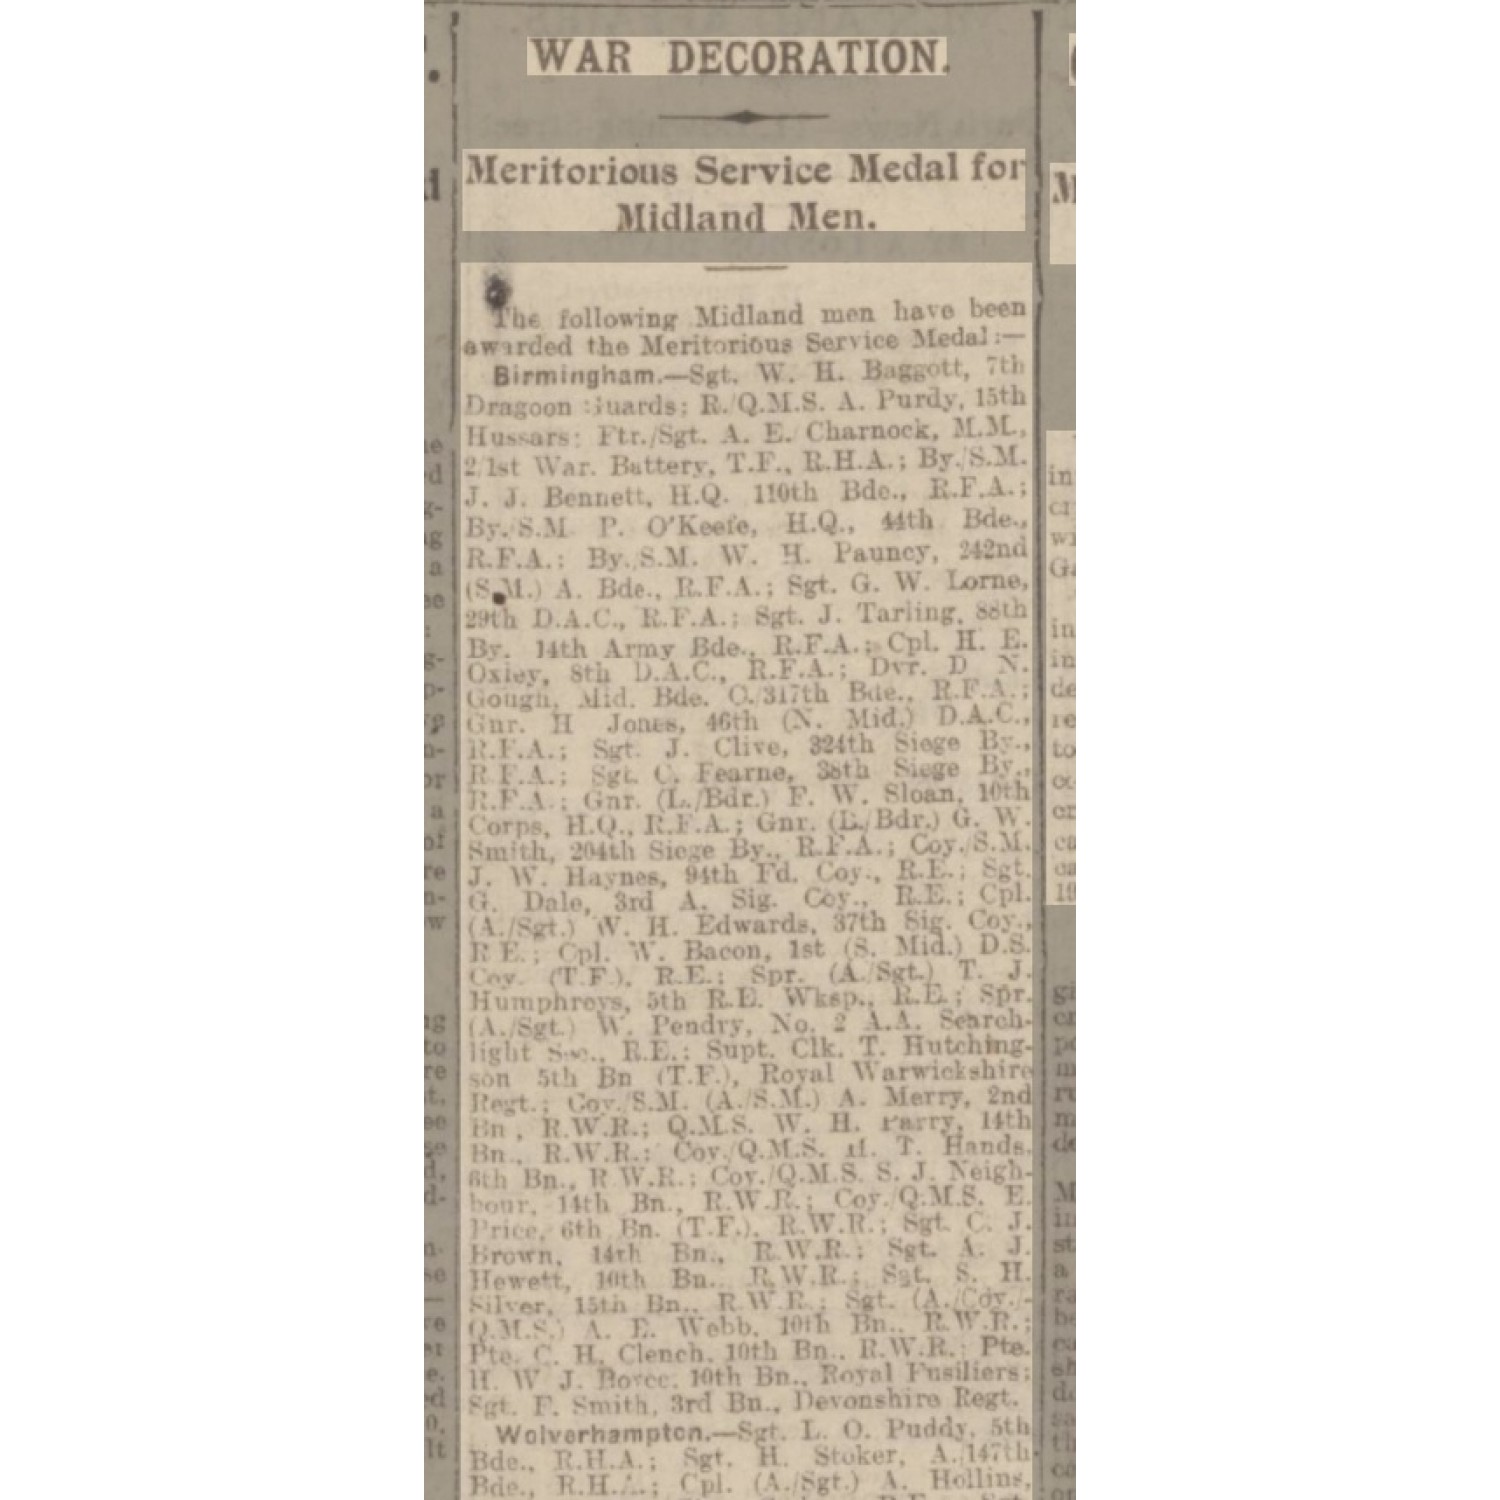 WAR DECORATION.
Meritorious Service Medal for
Midland Men.
The following Midland men have been
awarded the Meritorious Service Medal:—
Birmingham.—Sgt. W. H. Baggott, 7th
Dragoon Guards; R./Q.M.S. A. Purdy, 15th
Hussars; Ftr./Sgt. A. E. Charnock, M.M.,
2/1st War. Battery, T.F., R.H.A.; By./S.M.
J. J. Bennett, H.Q. 110th Bde., R.F.A.;
By./S.M. P. O'Keefe, H.Q., 44th Bde.,
R.F.A.; By./S.M. W. H. Pauncy, 242nd
(S.M.) A. Bde., R.F.A.; Sgt. G. W. Lorne,
29th D.A.C., R.F.A.; Sgt. J. Tarling, 88th
By. 14th Army Bde., R.F.A.; Cpl. H. E.
Oxley, 8th D.A.C., R.F.A.; Dvr. D. N.
Gough, Mid. Bde. C./317th Bde., R.F.A.;
Gnr. H. Jones, 46th (N. Mid.) D.A.C.,
R.F.A.; Sgt. J. Clive, 324th Siege By.,
R.F.A.; Sgt. C. Fearne, 38th Siege By.,
R.F.A.; Gnr. (L./Bdr.) F. W. Sloan, 10th
Corps, H.Q., R.F.A.; Gnr. (L./Bdr.) G. W.
Smith, 204th Siege By., R.F.A.; Coy./S.M.
J. W. Haynes, 94th Fd. Coy., R.E.; Sgt.
G. Dale, 3rd A. Sig. Coy., R.E.; Cpl.
(A./Sgt.) W. H. Edwards, 37th Sig. Coy.,
R.E.; Cpl. W. Bacon, 1st (S. Mid.) D.S.
Coy. (T.F.), R.E.; Spr. (A./Sgt.) T. J.
Humphreys, 5th R.E. Wksp., R.E.; Spr.
(A./Sgt.) W. Pendry, No. 2 A.A. Search-
light Sec., R.E.; Supt. Clk. T. Hutching-
son 5th Bn (T.F.), Royal Warwickshire
Regt.; Coy./S.M. (A./S.M.) A. Merry, 2nd
Bn., R.W.R.; Q.M.S. W. H. Parry, 14th
Bn., R.W.R.; Coy./Q.M.S. H. T. Hands,
6th Bn., R.W.R.; Coy./Q.M.S. S. J. Neigh-
bour, 14th Bn., R.W.R.; Coy./Q.M.S. E.
Price, 6th Bn. (T.F.), R.W.R.; Sgt. C. J.
Brown, 14th Bn., R.W.R.; Sgt. A. J.
Hewett, 10th Bn., R.W.R.; Sgt. S. H.
Silver, 15th Bn., R.W.R.; Sgt. (A./Coy./-
Q.M.S.) A. E. Webb, 10th Bn., R.W.R.;
Pte. C. H. Clench, 10th Bn., R.W.R.; Pte.
H. W. J. 10th Bn., Royal Fusiliers;
Sgt. F. Smith, 3rd Bn., Devonshire Regt.
Wolverhampton.—Sgt. L. O. Puddy, 5th
Bde., R.H.A.; Sgt. H. Stoker, A./147th
Bde., R.H.A.; Cpl. (A./Sgt.) A. Hollins,